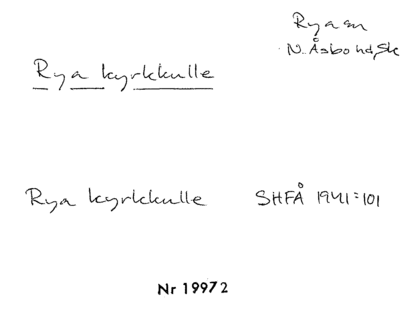 Rya sn
N. Åsbo hd, Sk
Rya kyrkkulle
Rya kyrkkulle SHFÅ 1941:101
Nr 19972